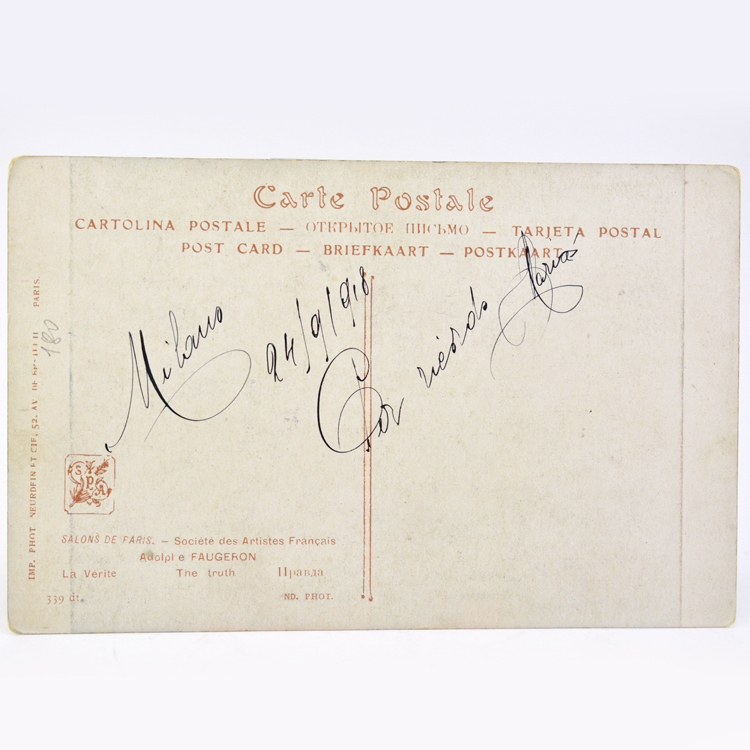 Carte Postale
CARTOLINA POSTALE — ОТКРЫТОЕ ПИСЬМО — TARJETA POSTAL
POST CARD — BRIEFKAART — POSTKAART
Milano
24/9/918
180
IMP. PHOT. NEURDEIN ET CIE, 52, AV. DE PARIS.
SALONS DE PARIS. — Société des Artistes Français
FAUGERON
La Vérite The truth Правда
339 dt. ND. PHOT.